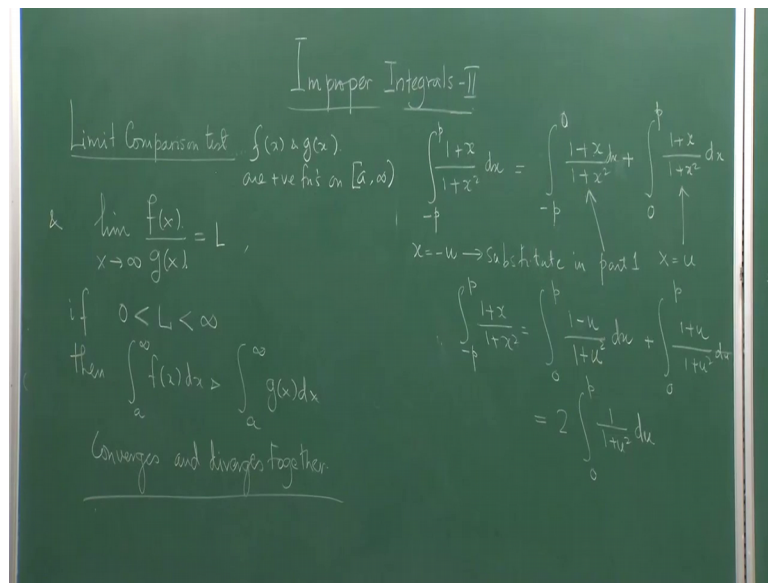 Improper Integrals-II
Limit Comparison test f(x) & g(x)
are +ve fn's on [a, ∞)
& lim_{x→∞} f(x)/g(x) = L ,
if 0 < L < ∞
then ∫_a^∞ f(x) dx & ∫_a^∞ g(x) dx
Converges and diverges together.
∫_{-p}^{p} (1+x)/(1+x²) dx = ∫_{-p}^{0} (1+x)/(1+x²) dx + ∫_0^p (1+x)/(1+x²) dx
x=-u → substitute in part 1 x=u
∫_{-p}^{p} (1+x)/(1+x²) = ∫_0^p (1-u)/(1+u²) du + ∫_0^p (1+u)/(1+u²) du
= 2 ∫_0^p 1/(1+u²) du